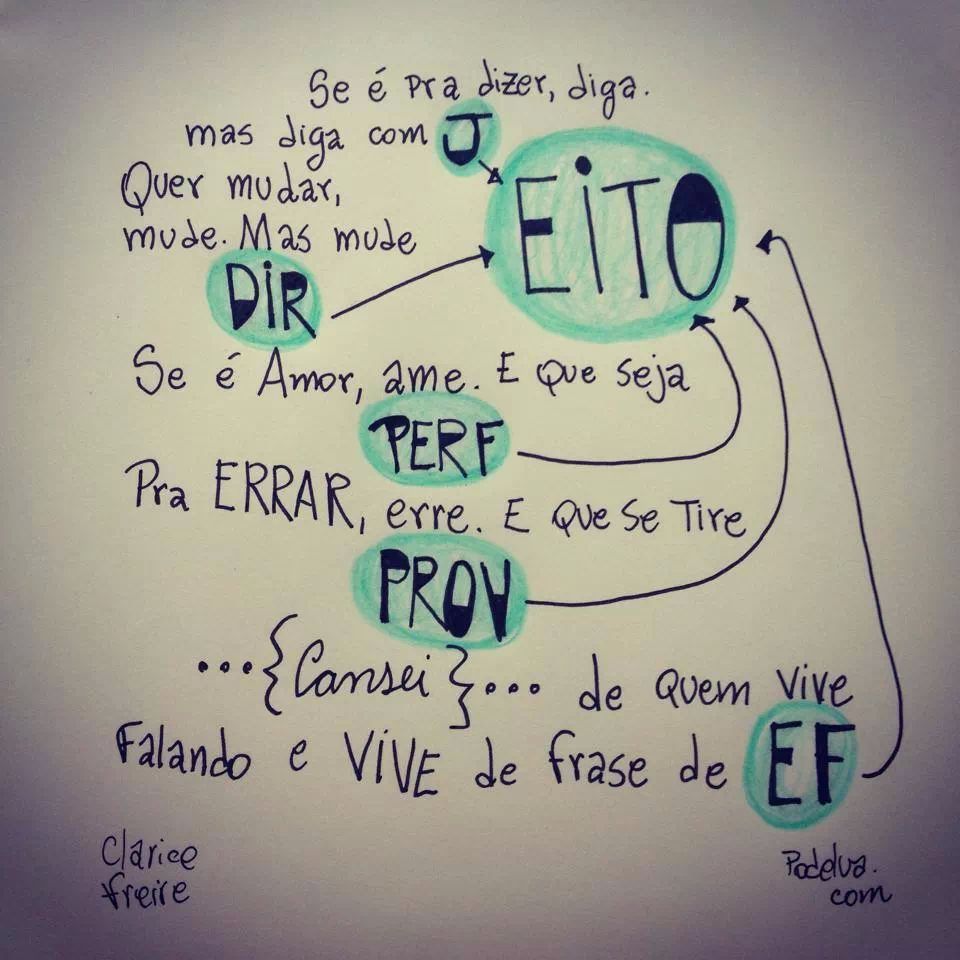 Se é pra dizer, diga.
mas diga com J
EiTO
Quer mudar,
mude. Mas mude
DiR
Se é Amor, ame. E que seja
PERF
Pra ERRAR, erre. E que se Tire
PROV
...{Cansei}... de quem vive
Falando e ViVE de frase de EF
Clarice
freire
Podelua.
com